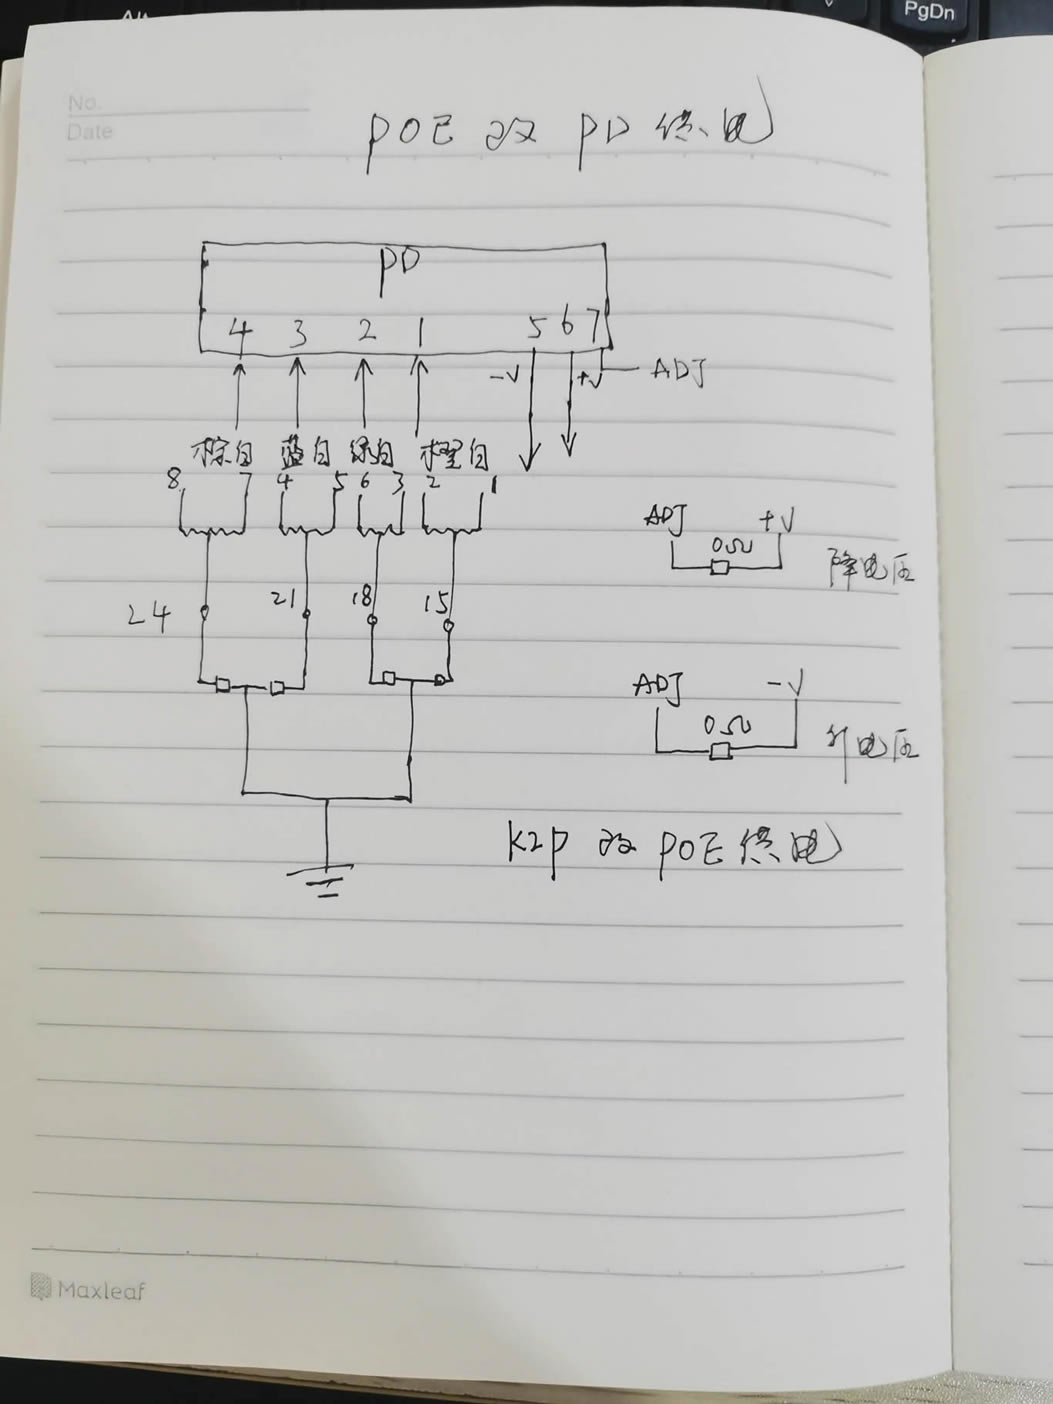 PgDn
Alt
No.
Date
POE 改 PD 供电
PD
4 3 2 1 5 6 7
-V +V ADJ
棕白 蓝白 绿白 橙白
8 7 4 5 6 3 2 1
ADJ +V
0Ω 降电压
24 21 18 15
ADJ -V
0Ω 升电压
K2P 改 POE 供电
Maxleaf